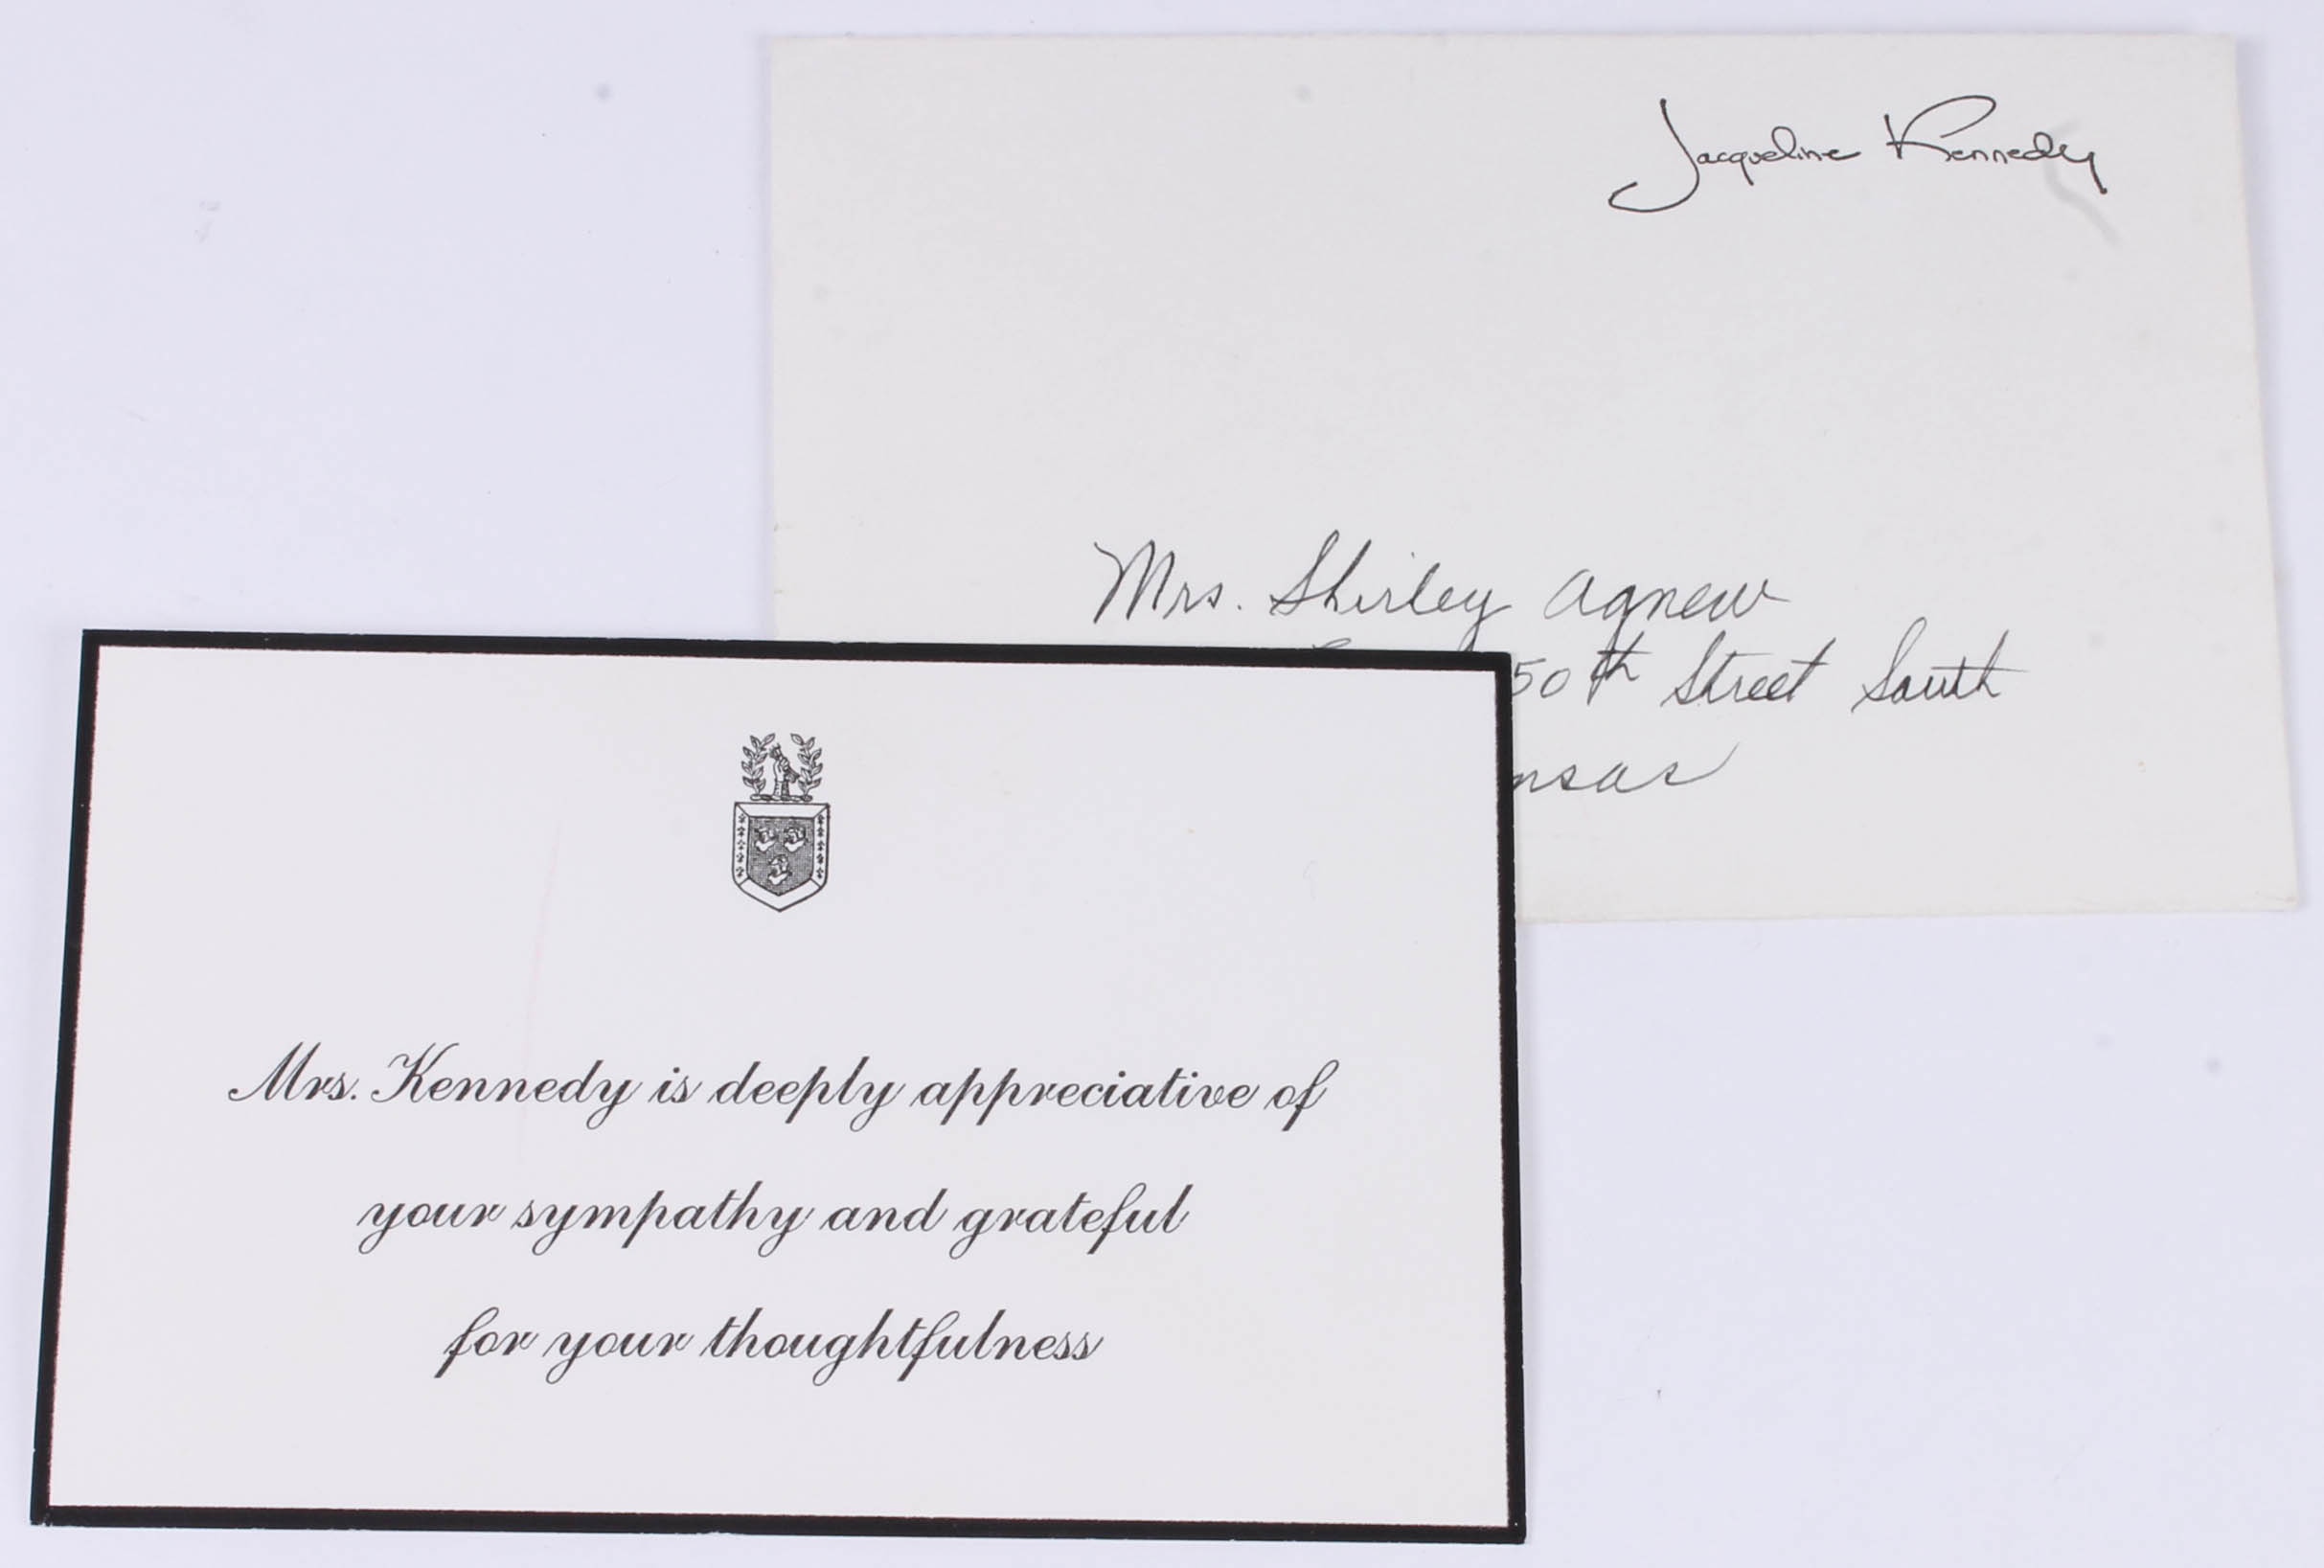 Jacqueline Kennedy
Mrs. Shirley Agnew
50th Street South
Mrs. Kennedy is deeply appreciative of
your sympathy and grateful
for your thoughtfulness